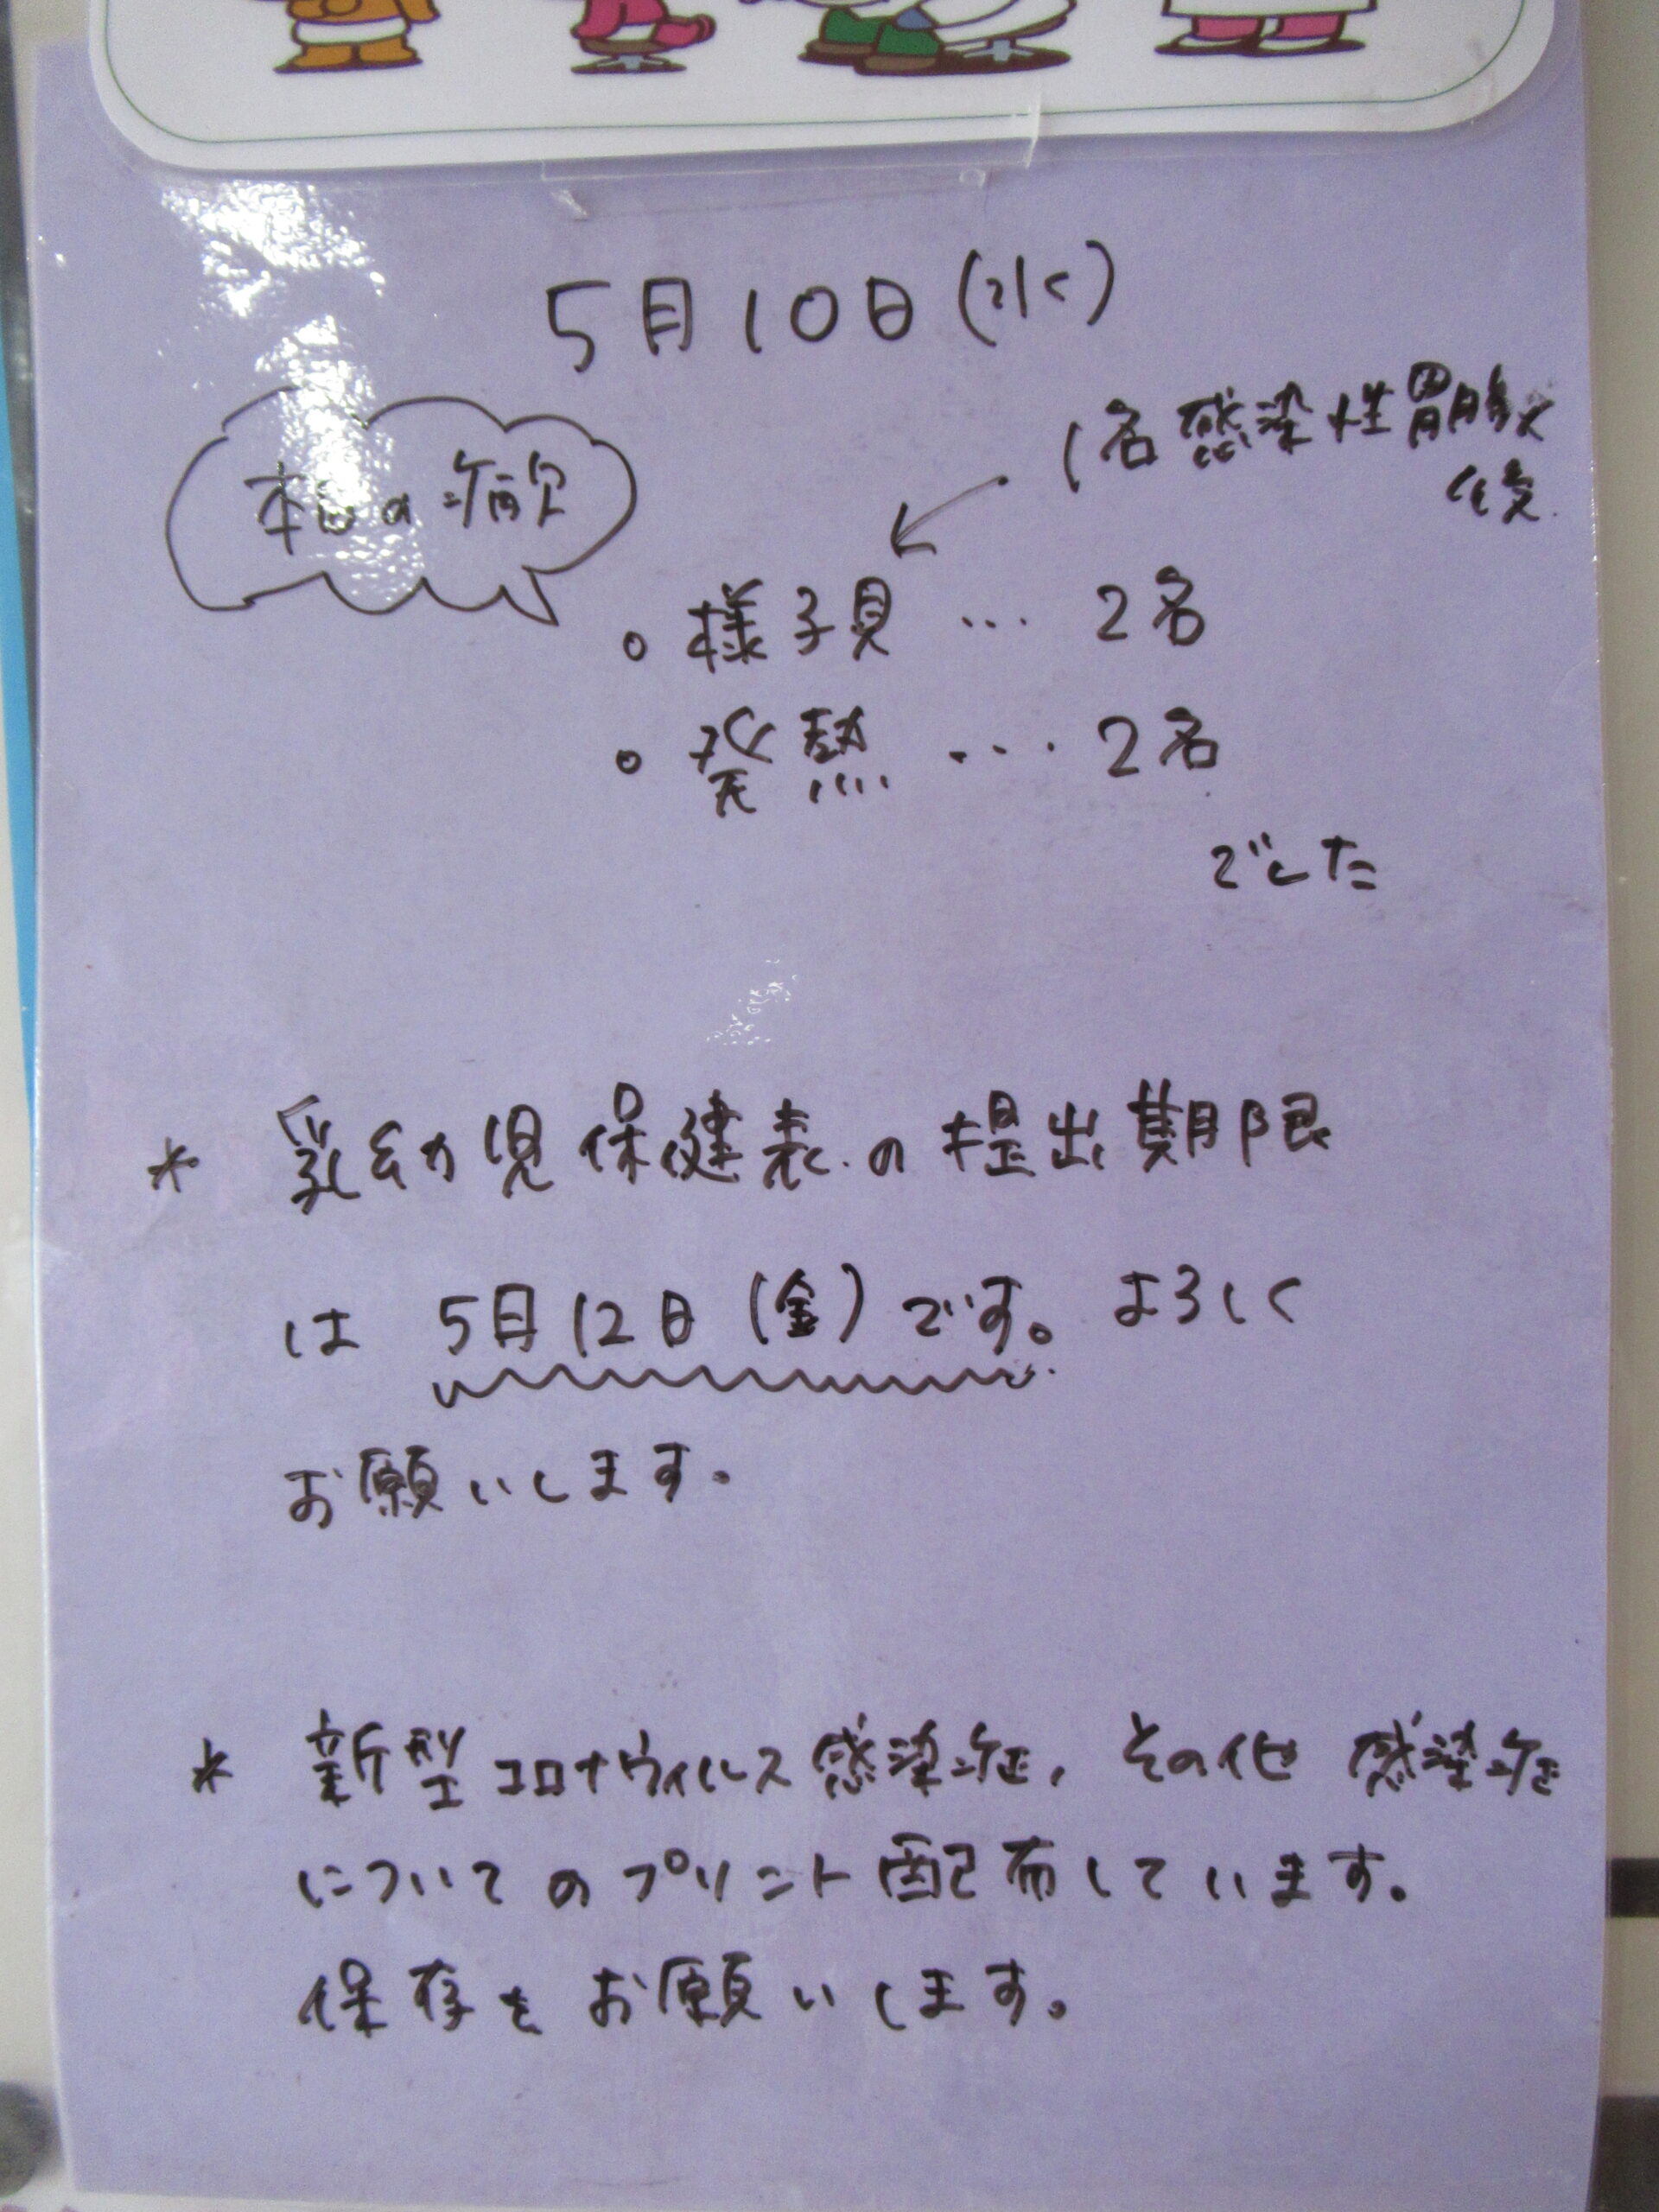 5月10日(水)
1名感染性胃腸炎
後
本日の病欠
。様子見 … 2名
。発熱 …. 2名
でした
* 乳幼児保健表の提出期限
は 5月12日(金)です。よろしく
お願いします。
* 新型コロナウィルス感染症、その他 感染症
についてのプリント配布しています。
保存をお願いします。